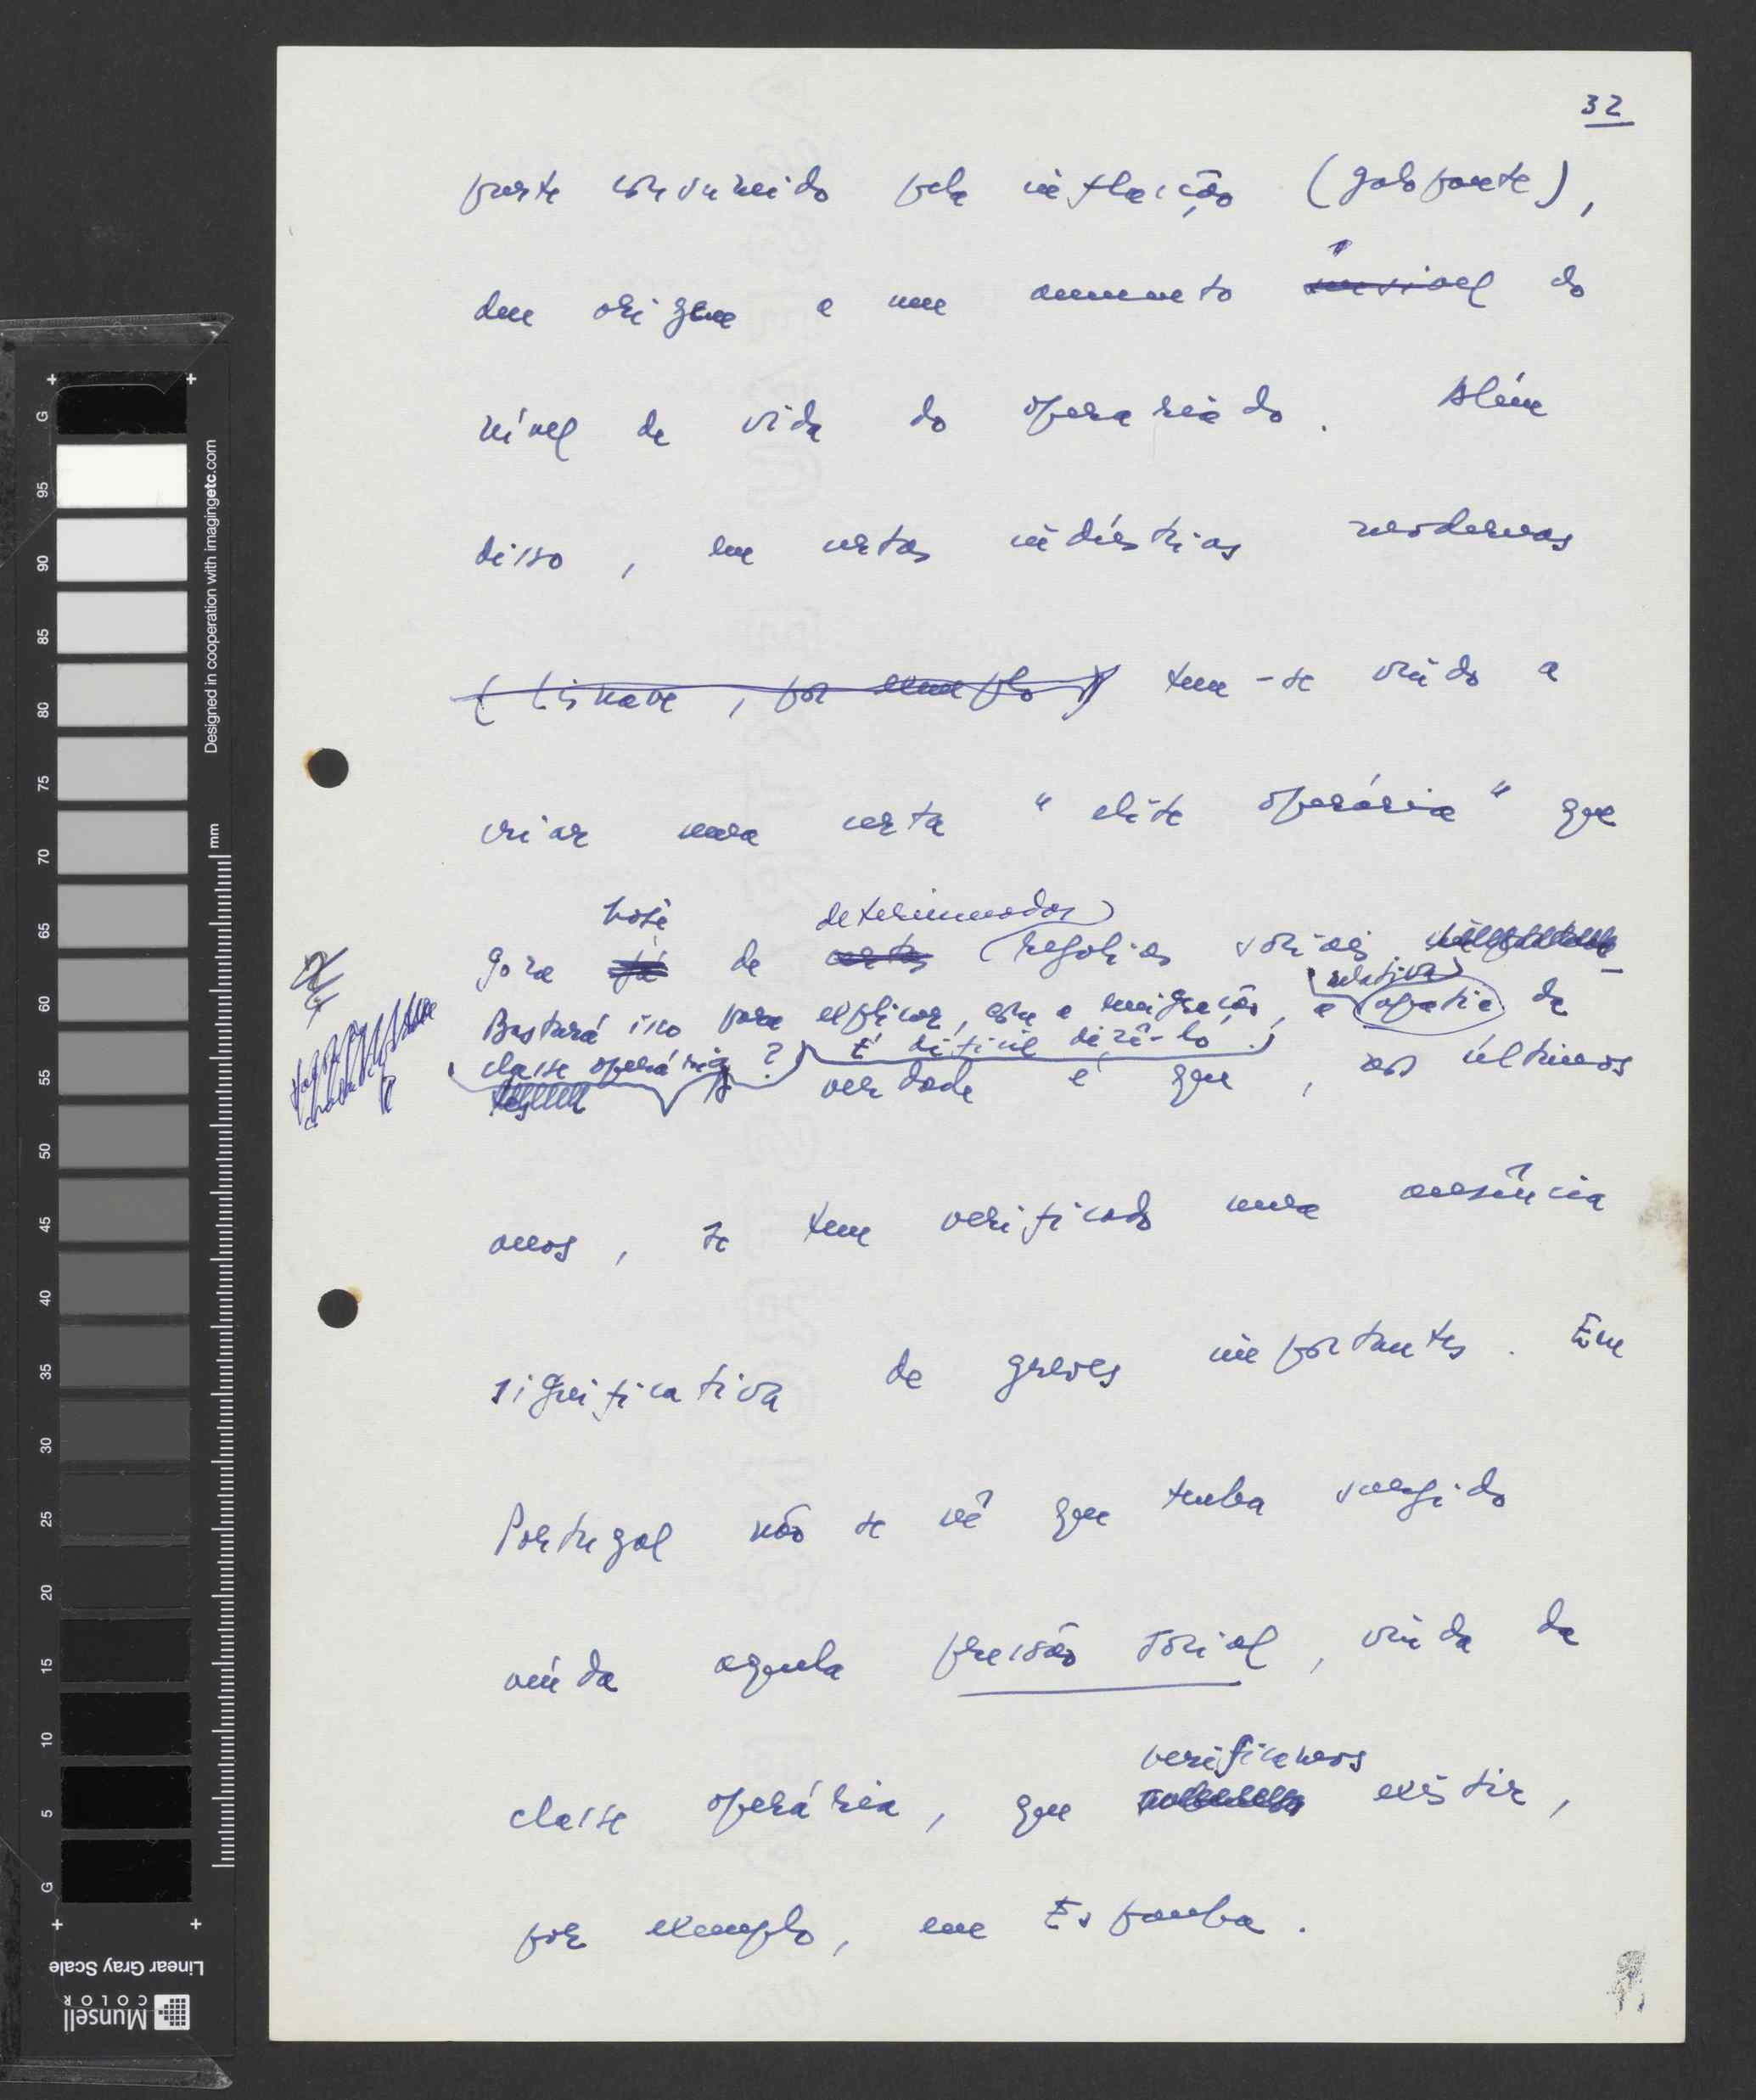 32
parte consumido pela inflação (galopante),
deu origem a um aumento do
nível de vida do operariado. Além
disso, em certas indústrias modernas
(Lisnave, por exemplo) tem-se vindo a
criar uma certa "elite operária" que
hoje determinadas
goza já de certas regalias sociais
relativa
Bastará isso para explicar, com a emigração, a apatia da
classe operária? É difícil dizê-lo.
A verdade é que, nos últimos
anos, se tem verificado uma ausência
significativa de greves importantes. Em
Portugal não se vê que tenha surgido
ainda aquela pressão social, vinda da
verificamos
classe operária, que existir,
por exemplo, em Espanha.
Designed in cooperation with imagingetc.com
mm
G
95
90
85
80
75
70
65
60
55
50
45
40
35
30
25
20
15
10
5
G
Linear Gray Scale
Munsell
COLOR